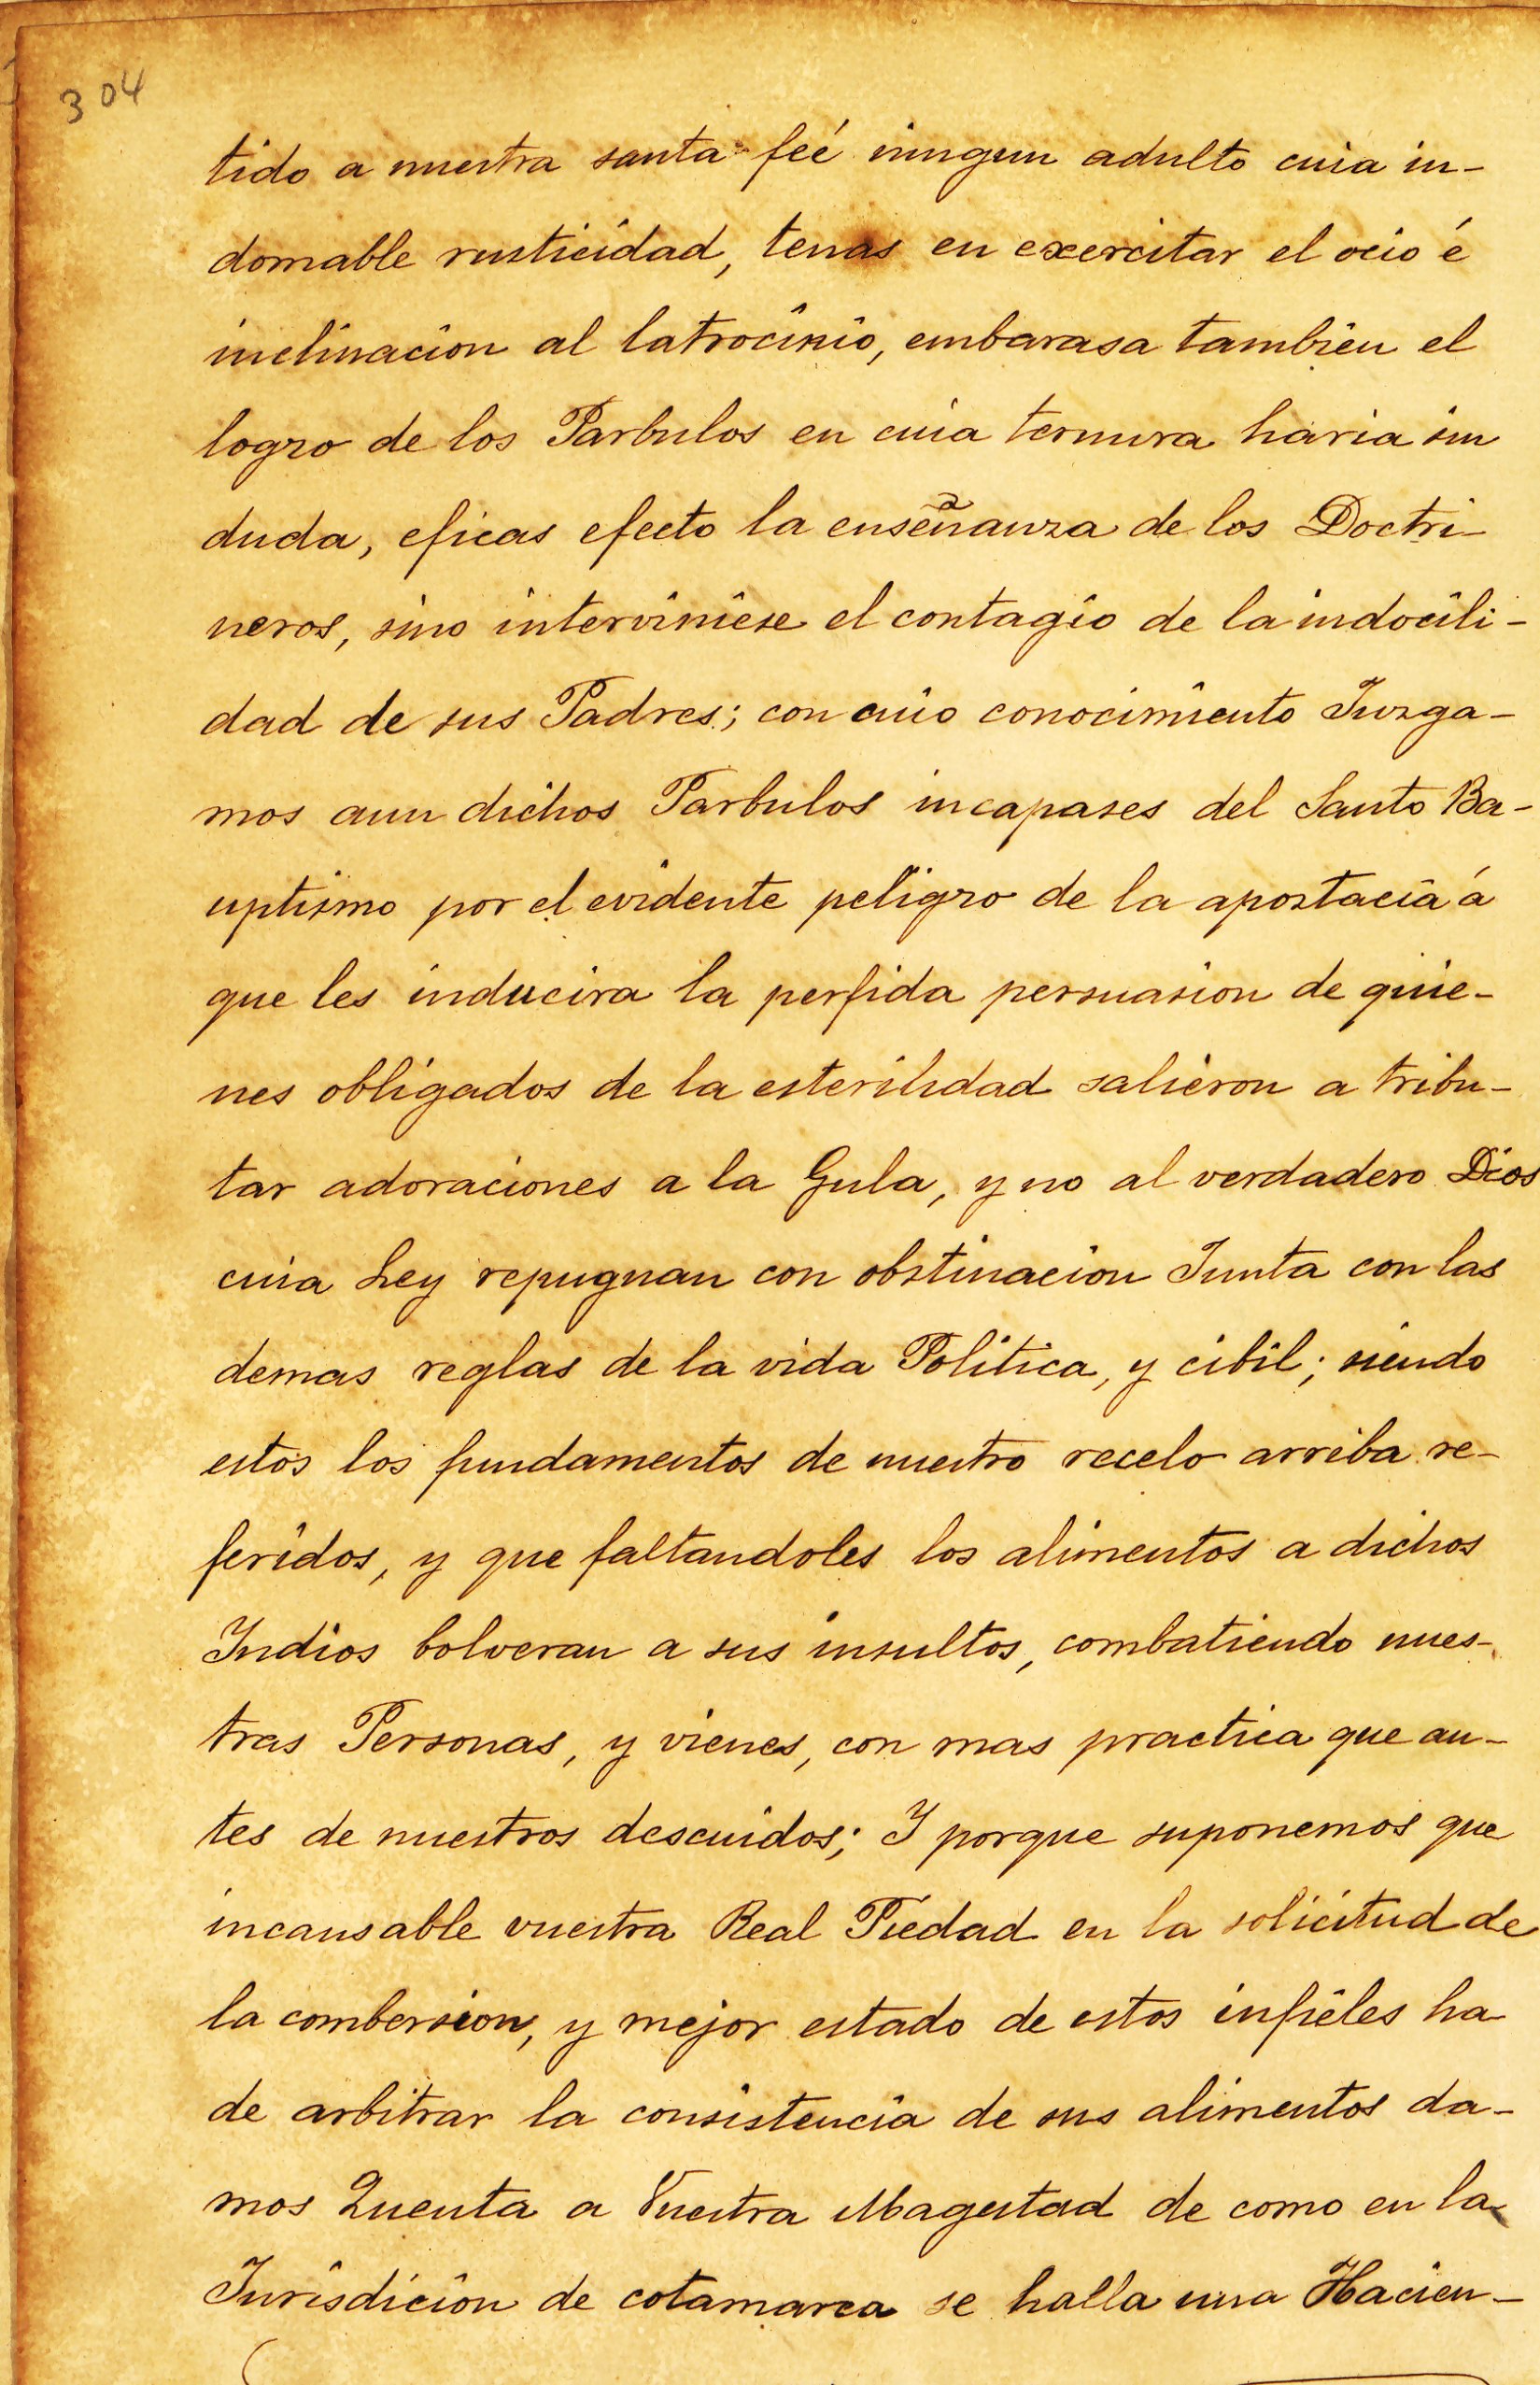 304
tido a nuestra santa feé ningun adulto cuia in-
domable rusticidad, tenas en exercitar el ocio é
inclinacion al latrocinio, embarasa tambien el
logro de los Parbulos en cuia ternura haria sin
duda, eficas efecto la enseñanza de los Doctri-
neros, sino interviniese el contagio de la indocili-
dad de sus Padres; con cuio conocimiento Juzga-
mos aun dichos Parbulos incapases del Santo Ba-
uptismo por el evidente peligro de la apostacia á
que les inducira la perfida persuasion de quie-
nes obligados de la esterilidad salieron a tribu-
tar adoraciones a la Gula, y no al verdadero Dios
cuia Ley repugnan con obstinacion Junta con las
demas reglas de la vida Politica, y cibil; siendo
estos los fundamentos de nuestro recelo arriba re-
feridos, y que faltandoles los alimentos a dichos
Indios bolveran a sus insultos, combatiendo nues-
tras Personas, y vienes, con mas practica que an-
tes de nuestros descuidos; I porque suponemos que
incansable vuestra Real Piedad en la solicitud de
la combersion, y mejor estado de estos infieles ha
de arbitrar la consistencia de sus alimentos da-
mos Quenta a Vuestra Magestad de como en la
Jurisdicion de cotamarca se halla una Hacien-